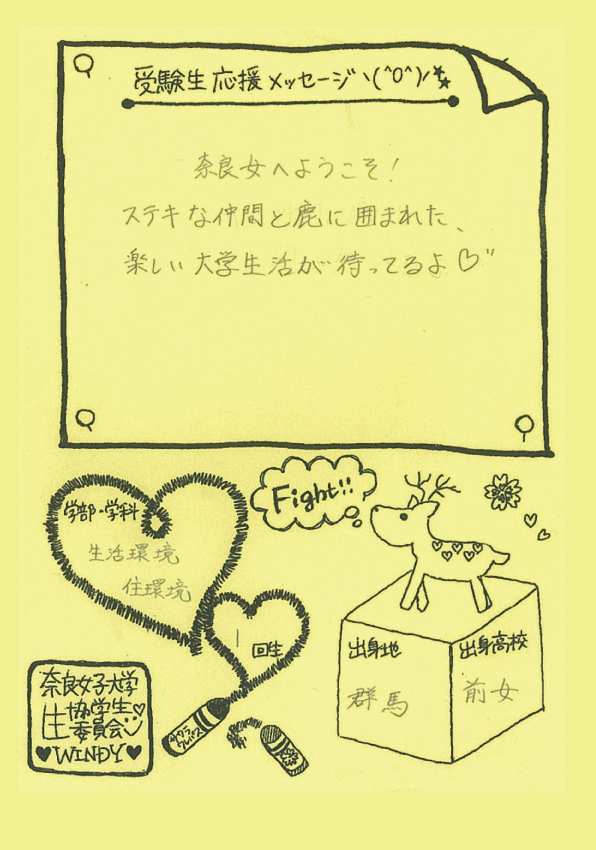 受験生応援メッセージヽ(^O^)ﾉ
奈良女へようこそ!
ステキな仲間と鹿に囲まれた、
楽しい大学生活が待ってるよ♡"
Fight!!
学部・学科
生活環境
住環境
1 回生
出身地
群馬
出身高校
前女
奈良女子大学
生協学生
委員会
♥WINDY♥
サクラ
クレパス